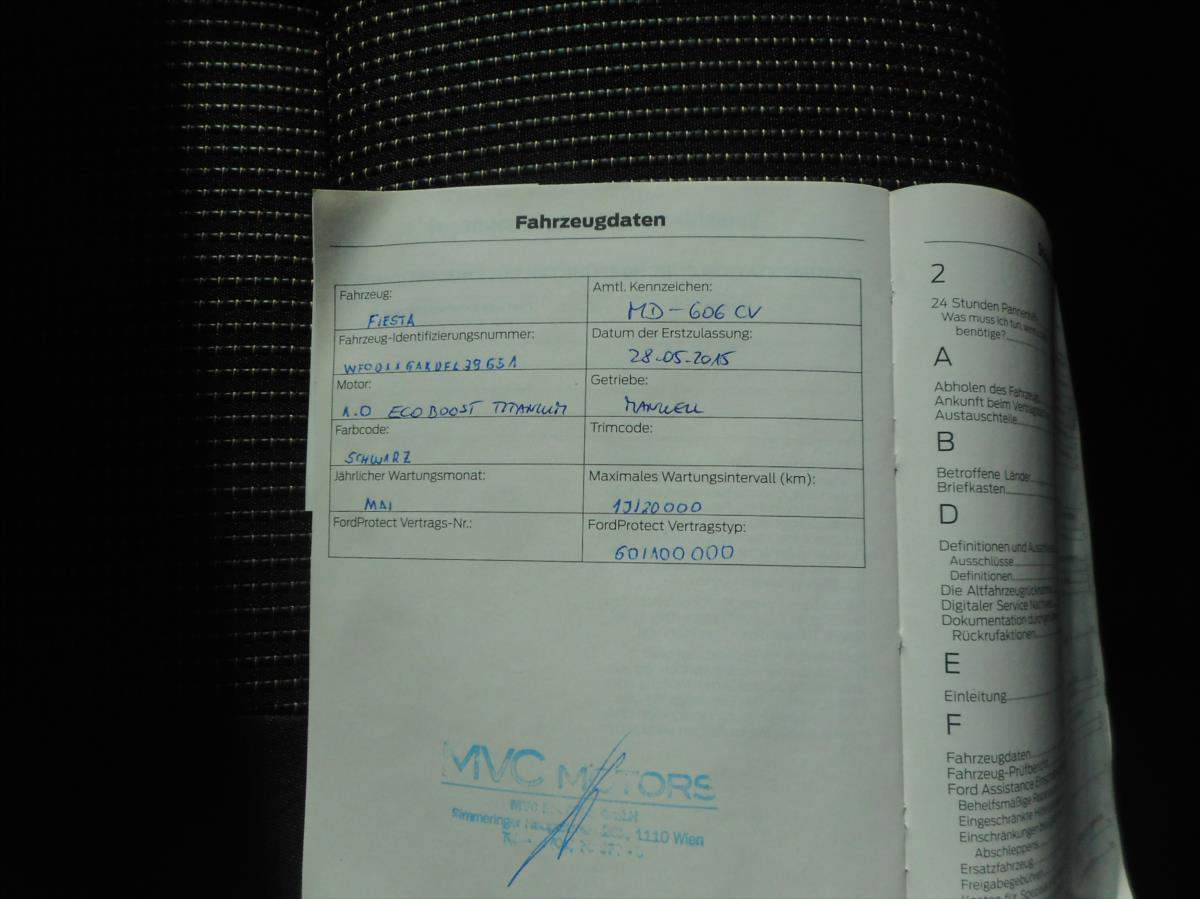 Fahrzeugdaten
Fahrzeug:
FIESTA
Amtl. Kennzeichen:
MD-606 CV
Fahrzeug-Identifizierungsnummer:
Datum der Erstzulassung:
28.05.2015
Motor:
1.0 ECOBOOST TITANIUM
Getriebe:
MANUELL
Farbcode:
SCHWARZ
Trimcode:
Jährlicher Wartungsmonat:
MAI
Maximales Wartungsintervall (km):
1J/20000
FordProtect Vertrags-Nr.:
FordProtect Vertragstyp:
60/100 000
MVC MOTORS
1110 Wien
2
24 Stunden
Was muss ich tun
benötige?
A
Abholen des
Ankunft beim
Austauschteile
B
Betroffene Länder
Briefkasten
D
Definitionen und
Ausschlüsse
Definitionen
Die
Digitaler Service
Dokumentation
Rückrufaktionen
E
Einleitung
F
Fahrzeugdaten
Fahrzeug-Prüfbericht
Ford Assistance
Behelfsmäßige
Eingeschränkte
Einschränkungen
Abschleppen
Ersatzfahrzeug
Freigabegebühren